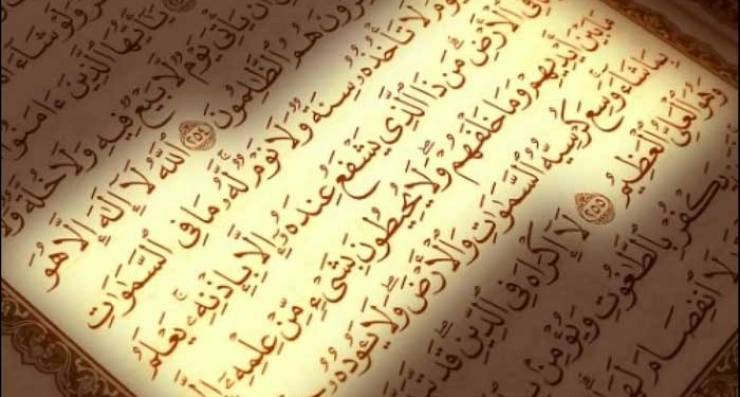 وَلَوْ شَآءَ
يَٰٓأَيُّهَا ٱلَّذِينَ ءَامَنُوٓا۟
أَن يَأْتِىَ يَوْمٌ لَّا بَيْعٌ فِيهِ وَلَا خُلَّةٌ وَلَا
هُمُ ٱلظَّٰلِمُونَ ٢٥٤ ٱللَّهُ لَآ إِلَٰهَ إِلَّا هُوَ
لَا تَأْخُذُهُۥ سِنَةٌ وَلَا نَوْمٌ ۚ لَّهُۥ مَا فِى ٱلسَّمَٰوَٰتِ
فِى ٱلْأَرْضِ ۗ مَن ذَا ٱلَّذِى يَشْفَعُ عِندَهُۥٓ إِلَّا بِإِذْنِهِۦ ۚ يَعْلَمُ
مَا بَيْنَ أَيْدِيهِمْ وَمَا خَلْفَهُمْ ۖ وَلَا يُحِيطُونَ بِشَىْءٍ مِّنْ عِلْمِهِۦٓ إِلَّا
بِمَا شَآءَ ۚ وَسِعَ كُرْسِيُّهُ ٱلسَّمَٰوَٰتِ وَٱلْأَرْضَ ۖ وَلَا يَـُٔودُهُۥ
وَهُوَ ٱلْعَلِىُّ ٱلْعَظِيمُ ٢٥٥ لَآ إِكْرَاهَ فِى ٱلدِّينِ ۖ قَد
يَكْفُرْ بِٱلطَّٰغُوتِ وَيُؤْمِنۢ
لَا ٱنفِصَامَ لَهَا